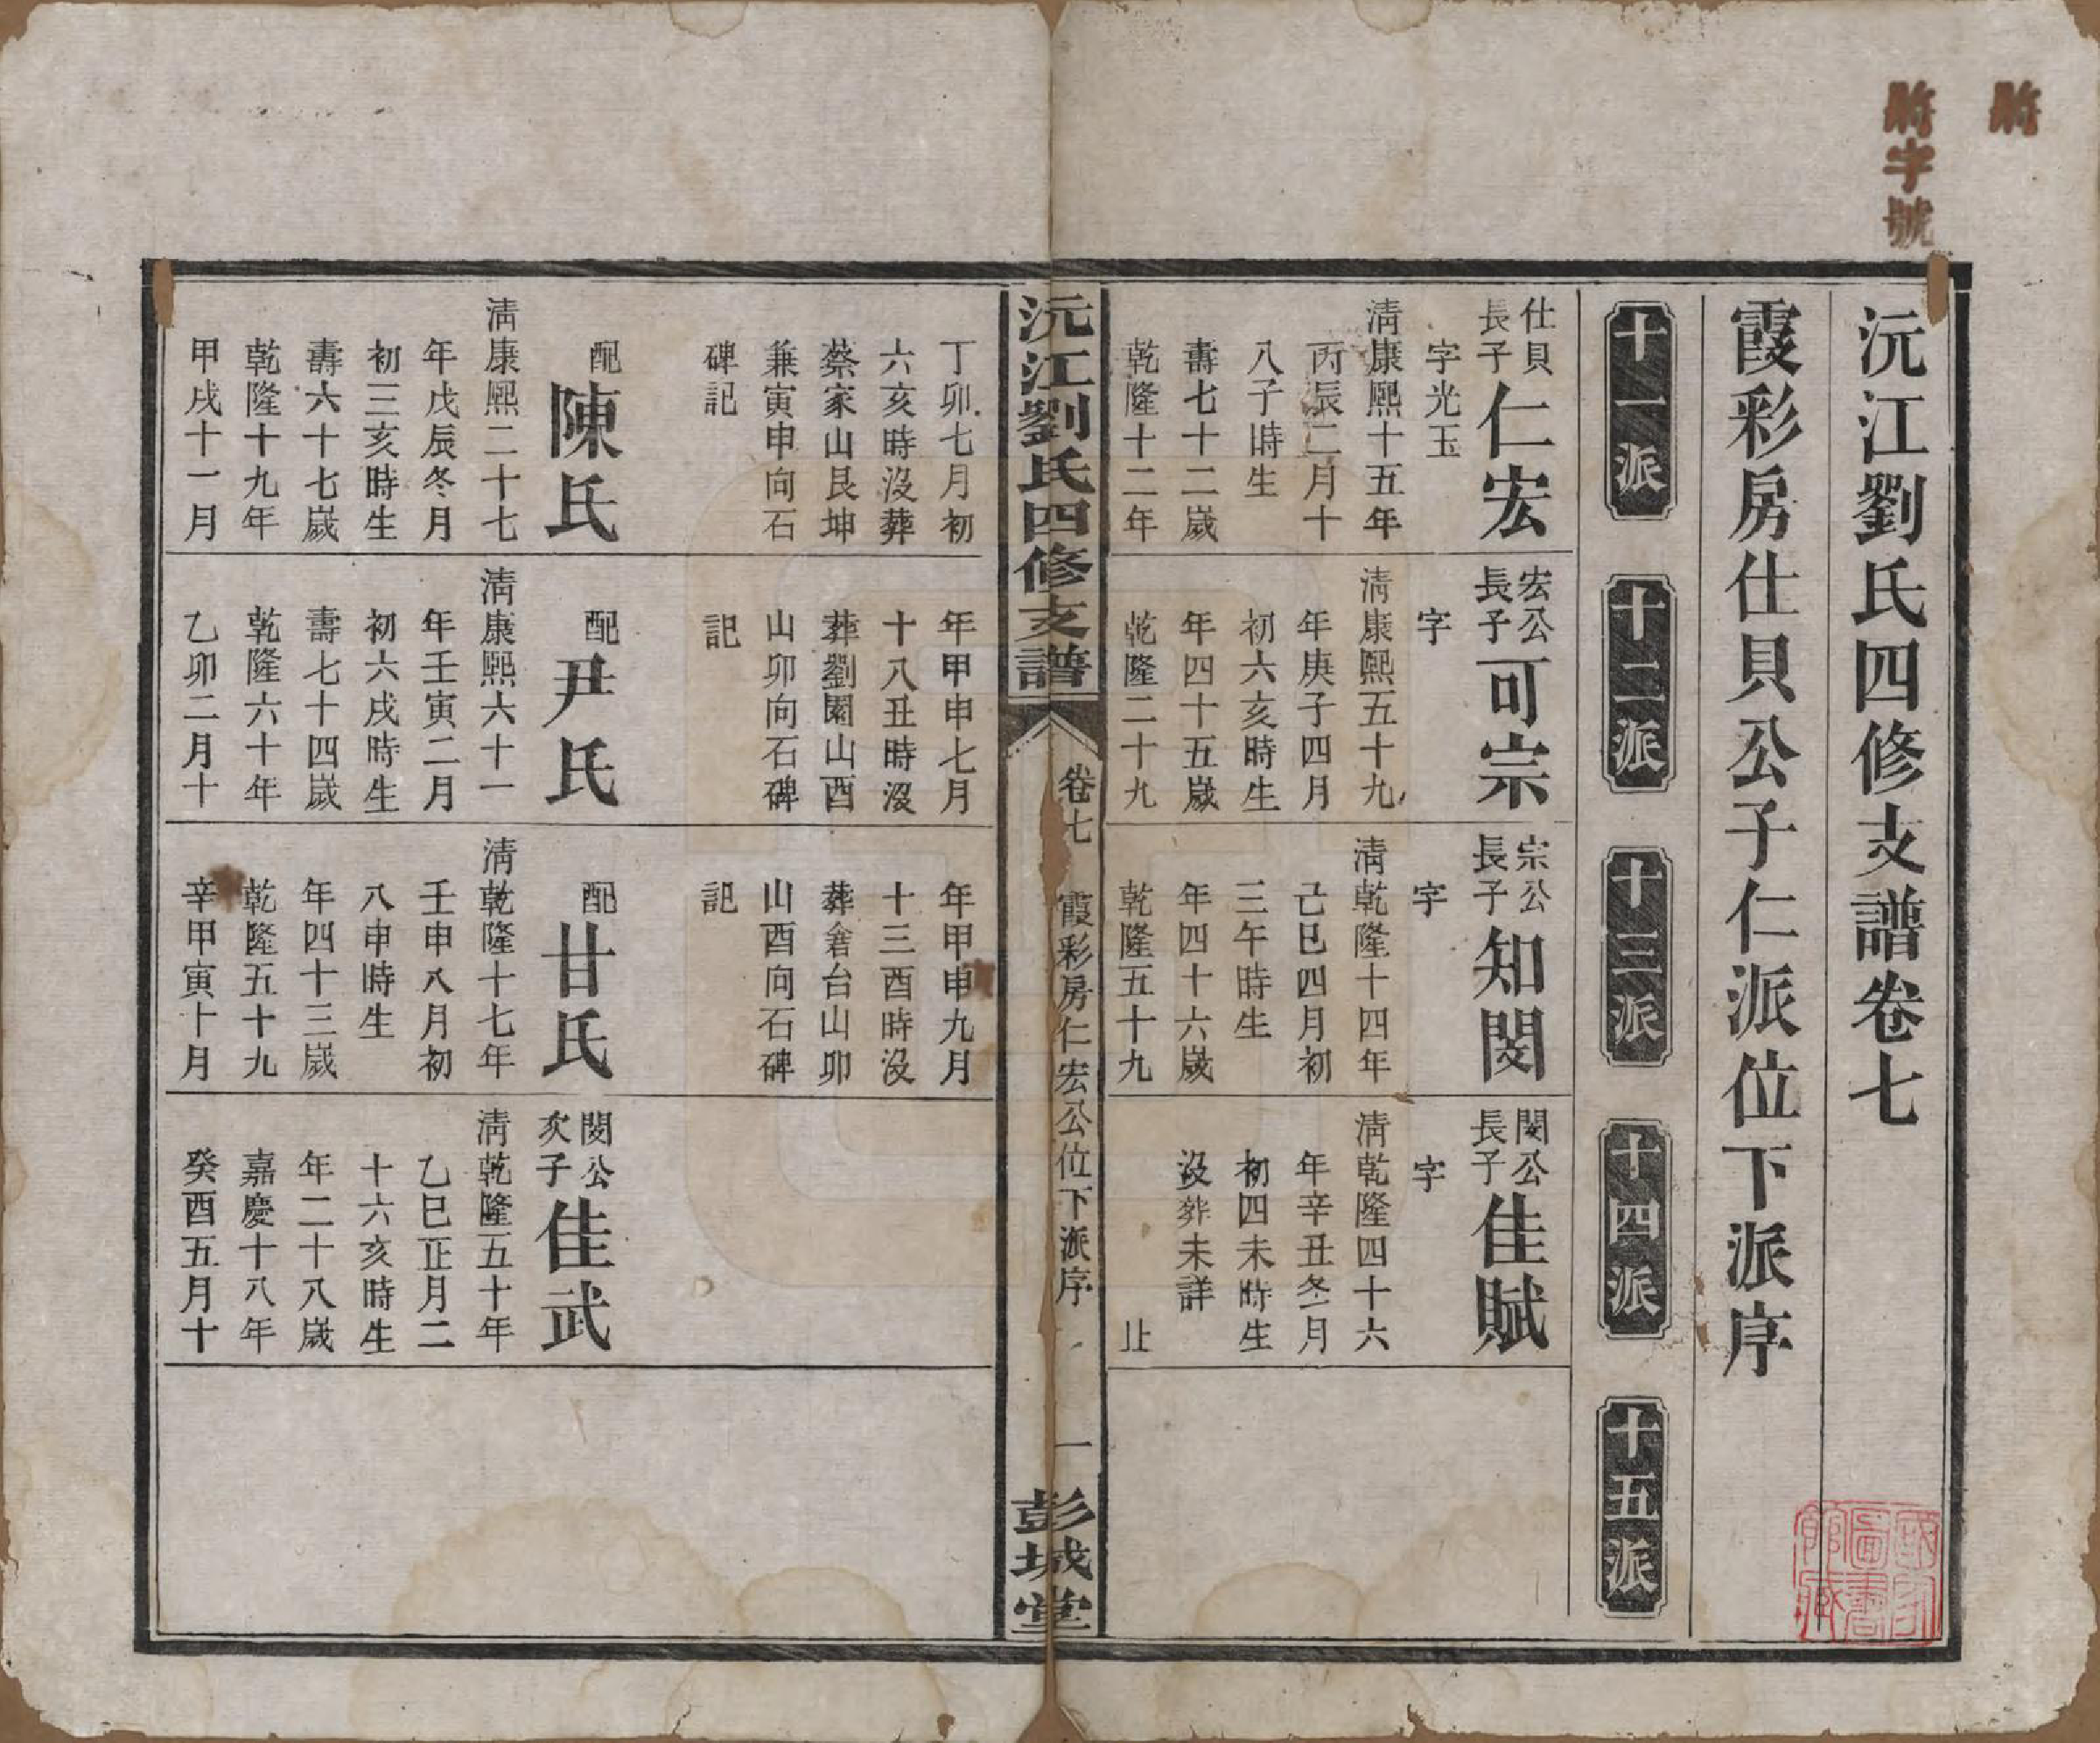 沅江劉氏四修支譜卷七
霞彩房仕貝公子仁派位下派序
十一派
十二派
十三派
十四派
十五派
仕貝
長子
仁宏
字光玉
清康熙十五年
丙辰二月十
八子時生
壽七十二歲
乾隆十二年
丁卯七月初
六亥時沒葬
蔡家山艮坤
兼寅申向石
碑記
配
陳氏
清康熙二十七
年戊辰冬月
初三亥時生
壽六十七歲
乾隆十九年
甲戌十一月
宏公
長子
可宗
字
清康熙五十九
年庚子四月
初六亥時生
年四十五歲
乾隆二十九
年甲申七月
十八丑時沒
葬劉園山酉
山卯向石碑
記
配
尹氏
清康熙六十一
年壬寅二月
初六戌時生
壽七十四歲
乾隆六十年
乙卯二月十
宗公
長子
知閔
字
清乾隆十四年
己巳四月初
三午時生
年四十六歲
乾隆五十九
年甲申九月
十三酉時沒
葬倉台山卯
山酉向石碑
記
配
甘氏
清乾隆十七年
壬申八月初
八申時生
年四十三歲
乾隆五十九
辛甲寅十月
閔公
長子
佳賦
字
清乾隆四十六
年辛丑冬月
初四未時生
沒葬未詳
止
閔公
次子
佳武
清乾隆五十年
乙巳正月二
十六亥時生
年二十八歲
嘉慶十八年
癸酉五月十
沅江劉氏四修支譜
卷七
霞彩房仁宏公位下派序
一
彭城堂
字號
國家
圖書
館藏